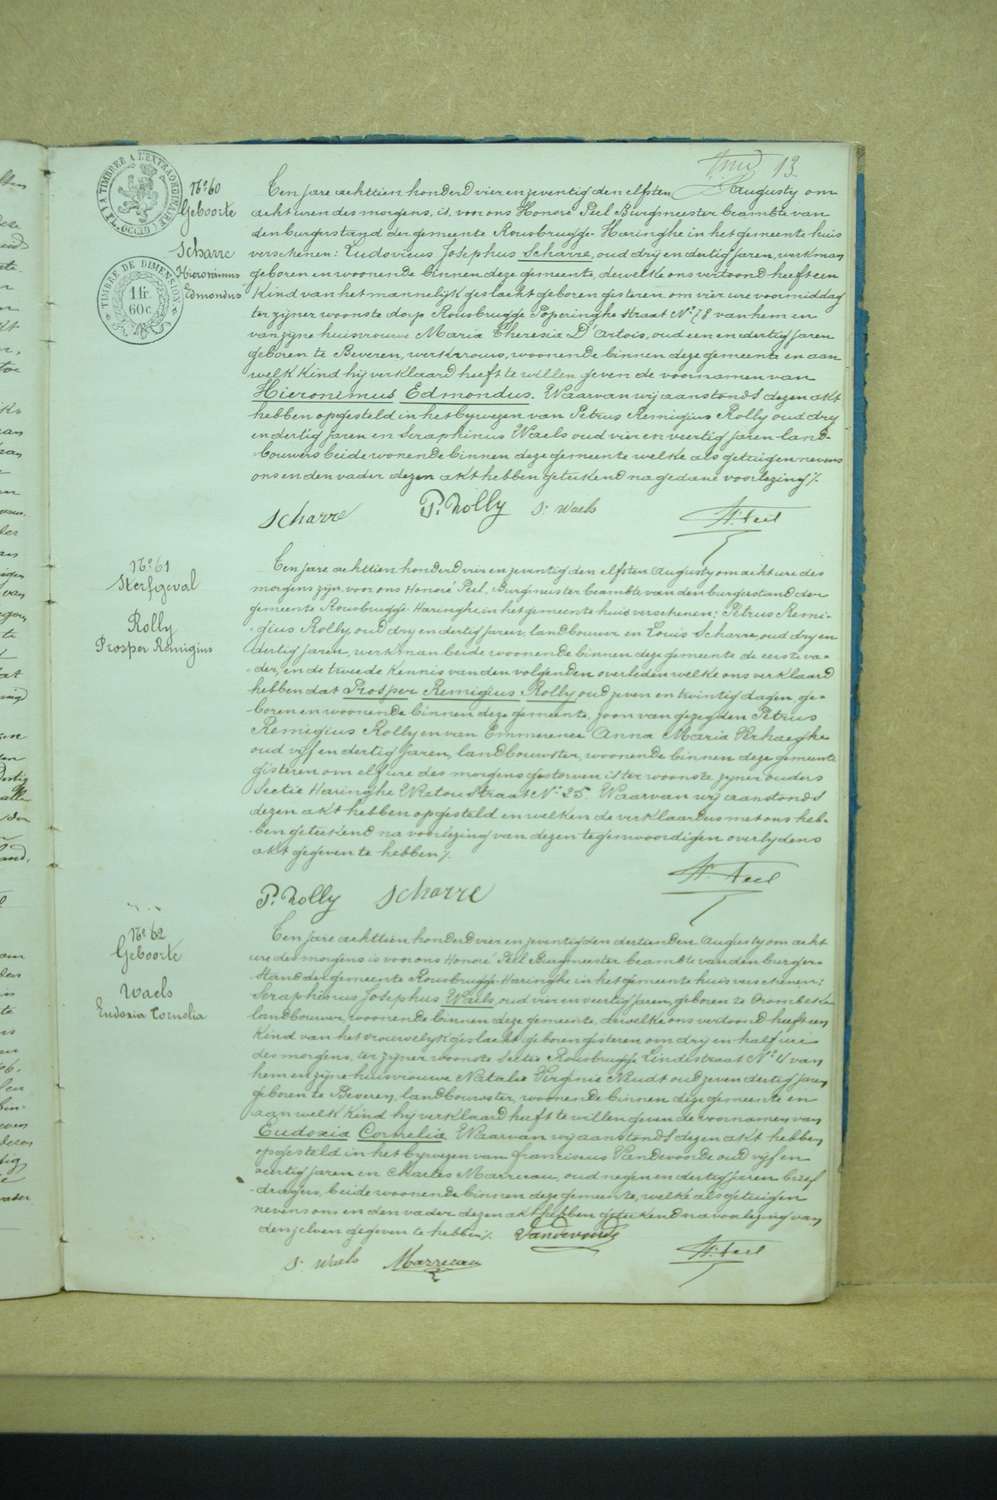 13
TIMBRE A L'EXTRAORDINAIRE
TIMBRE DE DIMENSION
1 fr.
60 c.
N.º 60
Geboorte
Scharre
Hieronimus
Edmondus
Ten jare achttien honderd vier en zeventig den elfsten Augusty om
acht uren des morgens, is, voor ons Honoré Peel Burgmeester beambte van
den burgerstand der gemeente Rousbrugge-Haringhe in het gemeente huis
verschenen: Ludovicus Josephus Scharre, oud dry en dertig jaren, werkman
geboren en woonende binnen deze gemeente, dewelke ons vertoond heeft een
kind van het mannelijk geslacht geboren gisteren om vier ure voormiddag
ter zyner woonste dorp Rousbrugge Poperinghe straat Nº 78 van hem en
van zyne huisvrouwe Maria Theresia D'artois, oud een en dertig jaren
geboren te Beveren, werkvrouw, woonende binnen deze gemeente en aan
welk kind hij verklaard heeft te willen geven de voornamen van
Hieronimus Edmondus. Waarvan wij aanstonds dezen akt
hebben opgesteld in het bywezen van Petrus Remigius Rolly oud dry
en dertig jaren en Seraphinus Waels oud vier en veertig jaren land-
bouwers beide wonende binnen deze gemeente welke als getuigen nevens
ons en den vader dezen akt hebben geteekend na gedane voorlezing ./.
Scharre P. Rolly S. Waels H. Peel
N.º 61
Sterfgeval
Rolly
Prosper Remigius
Ten jare achttien honderd vier en zeventig den elfsten Augusty om acht ure des
morgens zyn voor ons Honoré Peel, Burgmeester beambte van den burgerstand der
gemeente Rousbrugge-Haringhe in het gemeente huis verschenen: Petrus Remi-
gius Rolly oud dry en dertig jaren, landbouwer en Louis Scharre, oud dry en
dertig jaren, werkman beide woonende binnen deze gemeente de eerste va-
der, en de tweede kennis van den volgenden overleden welke ons verklaard
hebben dat Prosper Remigius Rolly oud zeven en twintig dagen, ge-
boren en woonende binnen deze gemeente, zoon van gezegden Petrus
Remigius Rolly en van Emmerence Anna Maria Verhaeghe
oud vijf en dertig jaren, landbouwster, woonende binnen deze gemeente
gisteren om elf ure des morgens gestorven is ter woonste zyner ouders
Sectie Haringhe Wietou straat Nº 25. Waarvan wij aanstonds
dezen akt hebben opgesteld en welken de verklaarders met ons heb-
ben geteekend na voorlezing van dezen tegenwoordigen overlydens
akt gegeven te hebben ./.
P. Rolly Scharre H. Peel
N.º 62
Geboorte
Waels
Eudoxia Cornelia
Ten jare achttien honderd vier en zeventig den dertienden Augusty om acht
ure des morgens is voor ons Honoré Peel Burgmeester beambte van den burger-
stand der gemeente Rousbrugge-Haringhe in het gemeente huis verschenen:
Seraphinus Josephus Waels, oud vier en veertig jaren, geboren te Crombeke
landbouwer, woonende binnen deze gemeente, dewelke ons vertoond heeft een
kind van het vrouwelyk geslacht geboren gisteren om dry en half ure
des morgens, ter zyner woonste Sectie Rousbrugge Lindestraat Nº 4 van
hem en zyne huisvrouwe Natalie Virginie Neudt oud zeven dertig jaren
geboren te Beveren, landbouwster, woonende binnen deze gemeente en
aan welk kind hij verklaard heeft te willen geven de voornamen van
Eudoxia Cornelia. Waarvan wij aanstonds dezen akt hebben
opgesteld in het bywezen van Franciscus Vandevoorde oud vijf en
veertig jaren en Charles Marreeau, oud negen en dertig jaren brief
dragers, beide woonende binnen deze gemeente, welke als getuigen
nevens ons en den vader dezen akt hebben geteekend na voorlezing van
denzelven gegeven te hebben ./. Vandevoorde
S. Waels Marreeau H. Peel